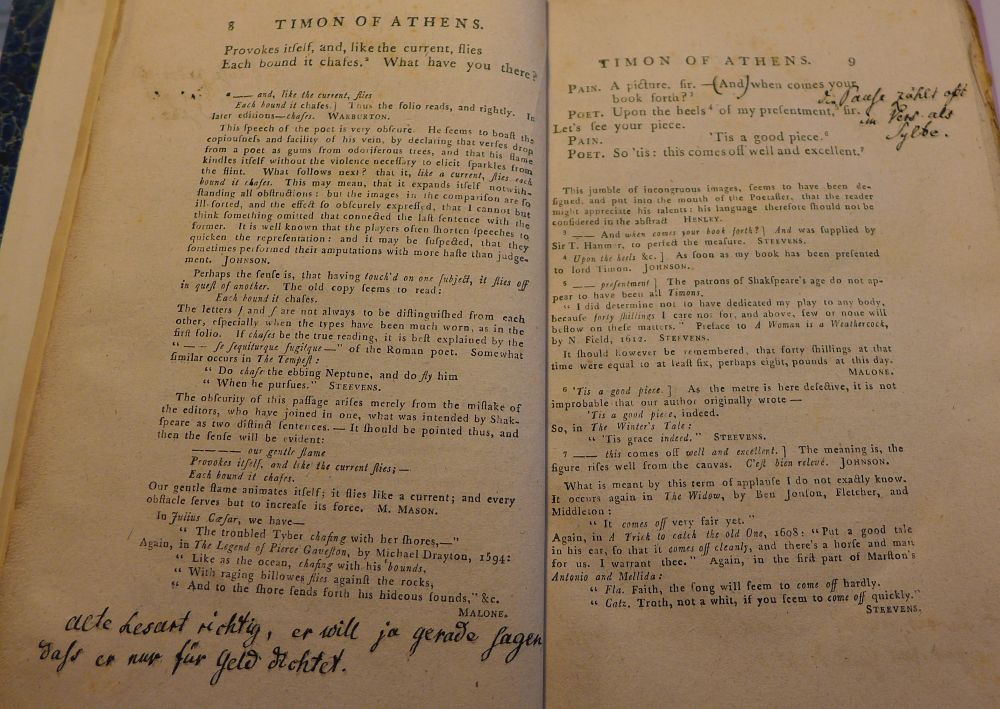 8 TIMON OF ATHENS.
Provokes itſelf, and, like the current, flies
Each bound it chafes.² What have you there?
² —— and, like the current, flies
Each bound it chafes.] Thus the folio reads, and rightly. In
later editions—chaſes. WARBURTON.
This ſpeech of the poet is very obſcure. He ſeems to boaſt the
copiouſneſs and facility of his vein, by declaring that verſes drop
from a poet as gums from odoriferous trees, and that his flame
kindles itſelf without the violence neceſſary to elicit ſparkles from
the flint. What follows next? that it, like a current, flies each
bound it chafes. This may mean, that it expands itſelf notwith-
ſtanding all obſtructions: but the images in the compariſon are ſo
ill-ſorted, and the effect ſo obſcurely expreſſed, that I cannot but
think ſomething omitted that connected the laſt ſentence with the
former. It is well known that the players often ſhorten ſpeeches to
quicken the repreſentation: and it may be ſuſpected, that they
ſometimes performed their amputations with more haſte than judge-
ment. JOHNSON.
Perhaps the ſenſe is, that having touch'd on one ſubject, it flies off
in queſt of another. The old copy ſeems to read:
Each bound it chaſes.
The letters ſ and f are not always to be diſtinguiſhed from each
other, eſpecially when the types have been much worn, as in the
firſt folio. If chaſes be the true reading, it is beſt explained by the
" — — ſe ſequiturque fugitque—" of the Roman poet. Somewhat
ſimilar occurs in The Tempeſt:
" Do chaſe the ebbing Neptune, and do fly him
" When he purſues." STEEVENS.
The obſcurity of this paſſage ariſes merely from the miſtake of
the editors, who have joined in one, what was intended by Shak-
ſpeare as two diſtinct ſentences.—It ſhould be pointed thus, and
then the ſenſe will be evident:
————— our gentle flame
Provokes itſelf, and like the current flies;—
Each bound it chafes.
Our gentle flame animates itſelf; it flies like a current; and every
obſtacle ſerves but to increaſe its force. M. MASON.
In Julius Cæſar, we have—
" The troubled Tyber chafing with her ſhores,—"
Again, in The Legend of Pierce Gaveſton, by Michael Drayton, 1594:
" Like as the ocean, chafing with his bounds,
" With raging billowes flies againſt the rocks,
" And to the ſhore ſends forth his hideous ſounds," &c.
MALONE.
alte Lesart richtig, er will ja gerade sagen
daſs er nur für Geld dichtet.
TIMON OF ATHENS. 9
PAIN. A picture, ſir.—(And) when comes your
book forth?³
POET. Upon the heels⁴ of my preſentment,⁵ ſir.
Let's ſee your piece.
PAIN. 'Tis a good piece.⁶
POET. So 'tis: this comes off well and excellent.⁷
die Pause zählt oft
im Vers als
Sylbe.
This jumble of incongruous images, ſeems to have been de-
ſigned, and put into the mouth of the Poetaſter, that the reader
might appreciate his talents: his language therefore ſhould not be
conſidered in the abſtract HENLEY.
³ —— And when comes your book forth?] And was ſupplied by
Sir T. Hanmer, to perfect the meaſure. STEEVENS.
⁴ Upon the heels &c.] As ſoon as my book has been preſented
to lord Timon. JOHNSON.
⁵ —— preſentment] The patrons of Shakſpeare's age do not ap-
pear to have been all Timons.
" I did determine not to have dedicated my play to any body,
becauſe forty ſhillings I care not for, and above, few or none will
beſtow on theſe matters." Preface to A Woman is a Weathercock,
by N. Field, 1612. STEEVENS.
It ſhould however be remembered, that forty ſhillings at that
time were equal to at leaſt ſix, perhaps eight, pounds at this day.
MALONE.
⁶ 'Tis a good piece.] As the metre is here defective, it is not
improbable that our author originally wrote—
'Tis a good piece, indeed.
So, in The Winter's Tale:
" 'Tis grace indeed." STEEVENS.
⁷ —— this comes off well and excellent.] The meaning is, the
figure riſes well from the canvas. C'eſt bien relevé. JOHNSON.
What is meant by this term of applauſe I do not exactly know.
It occurs again in The Widow, by Ben Jonſon, Fletcher, and
Middleton:
" It comes off very fair yet."
Again, in A Trick to catch the old One, 1608: " Put a good tale
in his ear, ſo that it comes off cleanly, and there's a horſe and man
for us. I warrant thee." Again, in the firſt part of Marſton's
Antonio and Mellida:
" Fla. Faith, the ſong will ſeem to come off hardly.
" Catz. Troth, not a whit, if you ſeem to come off quickly."
STEEVENS.